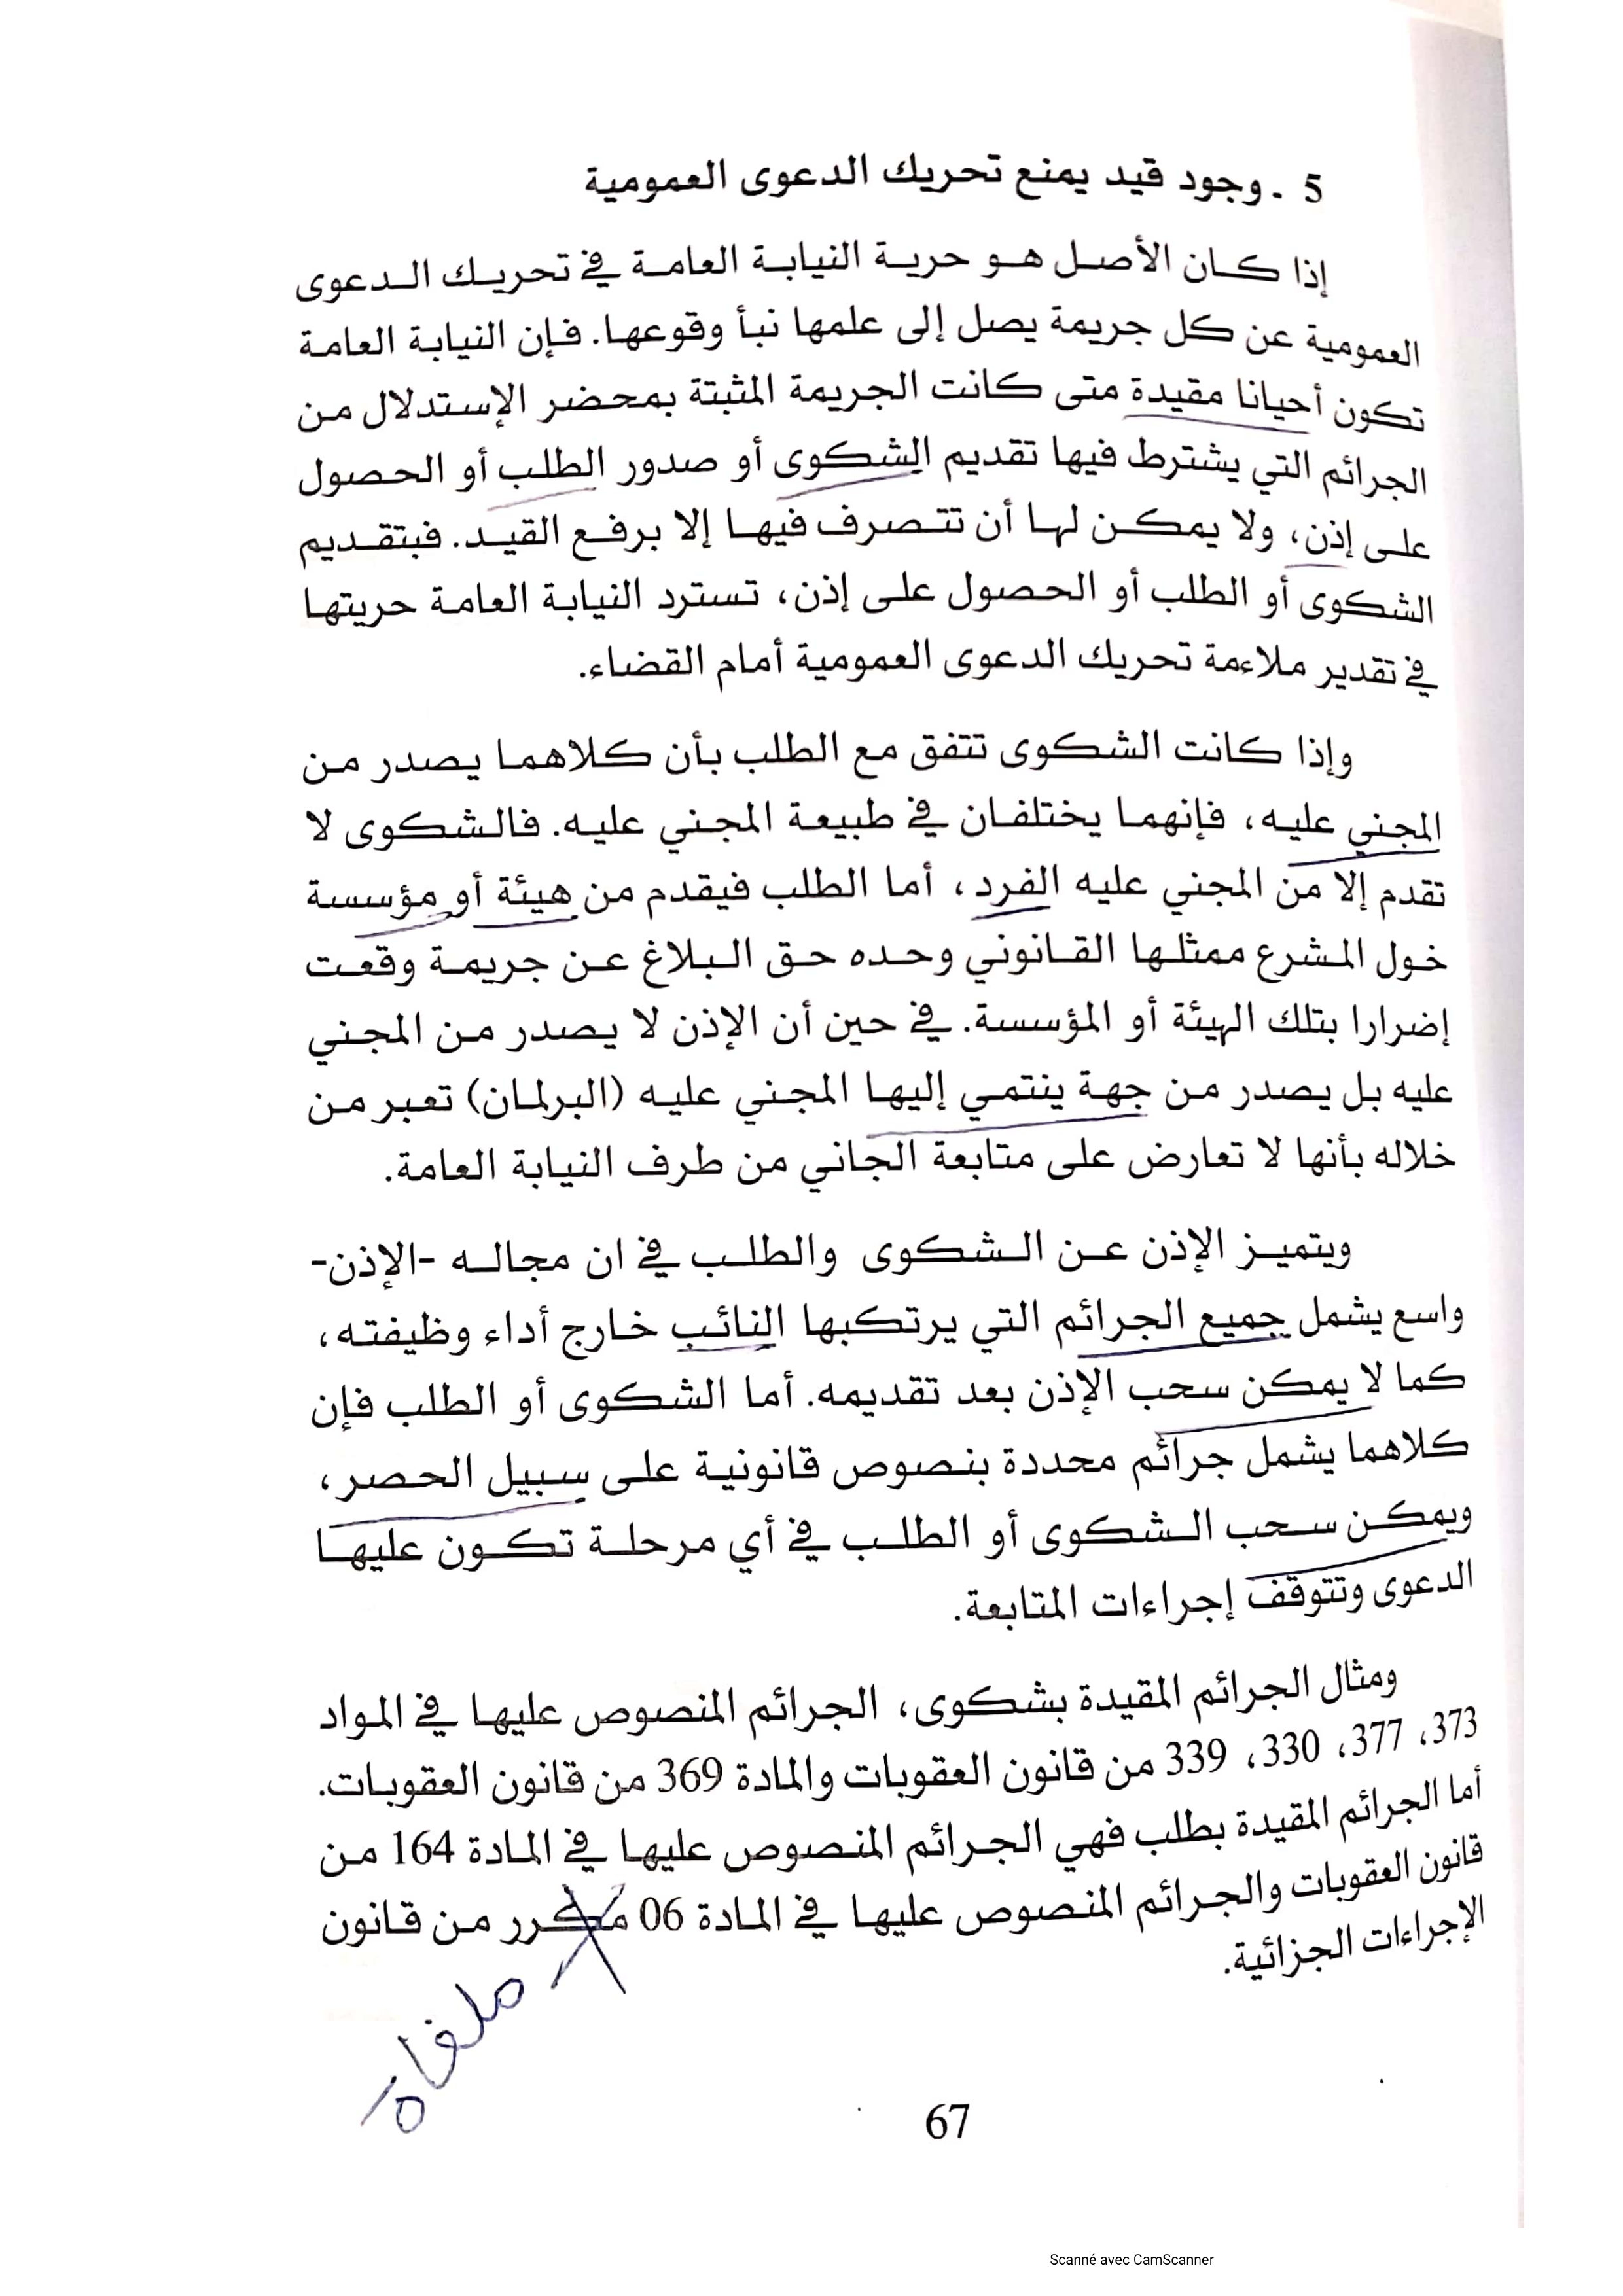 5 - وجود قيد يمنع تحريك الدعوى العمومية
إذا كان الأصل هو حرية النيابة العامة في تحريك الدعوى
العمومية عن كل جريمة يصل إلى علمها نبأ وقوعها. فإن النيابة العامة
تكون أحيانا مقيدة متى كانت الجريمة المثبتة بمحضر الإستدلال من
الجرائم التي يشترط فيها تقديم الشكوى أو صدور الطلب أو الحصول
على إذن، ولا يمكن لها أن تتصرف فيها إلا برفع القيد. فبتقديم
الشكوى أو الطلب أو الحصول على إذن، تسترد النيابة العامة حريتها
في تقدير ملاءمة تحريك الدعوى العمومية أمام القضاء.
وإذا كانت الشكوى تتفق مع الطلب بأن كلاهما يصدر من
المجني عليه، فإنهما يختلفان في طبيعة المجني عليه. فالشكوى لا
تقدم إلا من المجني عليه الفرد، أما الطلب فيقدم من هيئة أو مؤسسة
خول المشرع ممثلها القانوني وحده حق البلاغ عن جريمة وقعت
إضرارا بتلك الهيئة أو المؤسسة. في حين أن الإذن لا يصدر من المجني
عليه بل يصدر من جهة ينتمي إليها المجني عليه (البرلمان) تعبر من
خلاله بأنها لا تعارض على متابعة الجاني من طرف النيابة العامة.
ويتميز الإذن عن الشكوى والطلب في ان مجاله -الإذن-
واسع يشمل جميع الجرائم التي يرتكبها النائب خارج أداء وظيفته،
كما لا يمكن سحب الإذن بعد تقديمه. أما الشكوى أو الطلب فإن
كلاهما يشمل جرائم محددة بنصوص قانونية على سبيل الحصر،
ويمكن سحب الشكوى أو الطلب في أي مرحلة تكون عليها
الدعوى وتتوقف إجراءات المتابعة.
ومثال الجرائم المقيدة بشكوى، الجرائم المنصوص عليها في المواد
373، 377، 330، 339 من قانون العقوبات والمادة 369 من قانون العقوبات.
أما الجرائم المقيدة بطلب فهي الجرائم المنصوص عليها في المادة 164 من
قانون العقوبات والجرائم المنصوص عليها في المادة 06 مكرر من قانون
الإجراءات الجزائية.
ملغاة
67
Scanné avec CamScanner